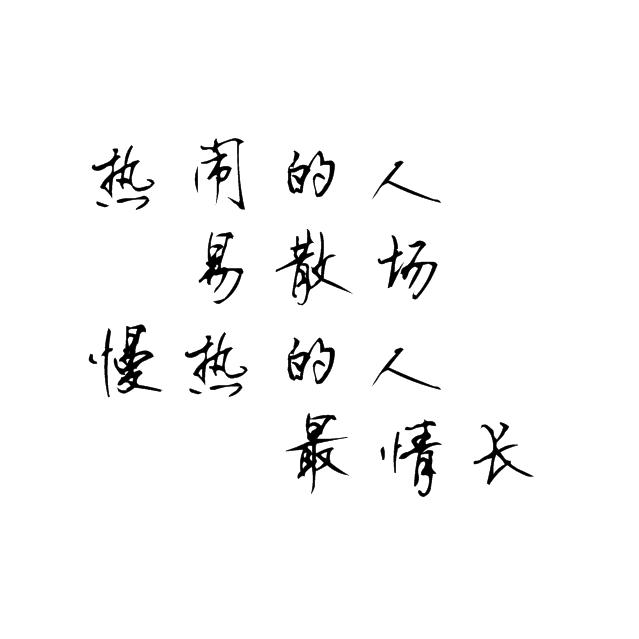 热闹的人
易散场
慢热的人
最情长